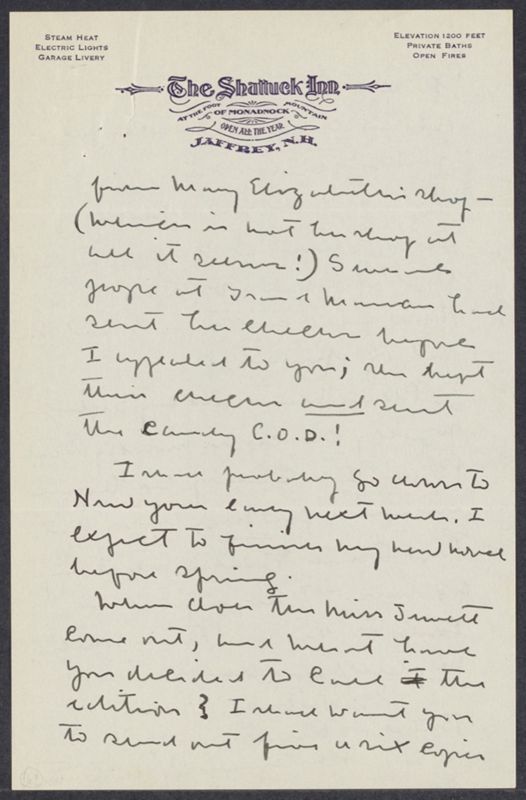 STEAM HEAT
ELECTRIC LIGHTS
GARAGE LIVERY
ELEVATION 1200 FEET
PRIVATE BATHS
OPEN FIRES
The Shattuck Inn
AT THE FOOT OF MONADNOCK MOUNTAIN
OPEN ALL THE YEAR
JAFFREY, N.H.
from Mary Elizabeth's shop—
(which is not her shop at
all it seems!) Several
people at Grand Manan had
sent her checks before
I appealed to you; she kept
their checks and sent
the candy C.O.D.!
I shall probably go down to
New York early next week. I
expect to finish my new novel
before spring.
When does the Miss Jewett
come out, and what have
you decided to call the
edition? I shall want you
to send out five or six copies